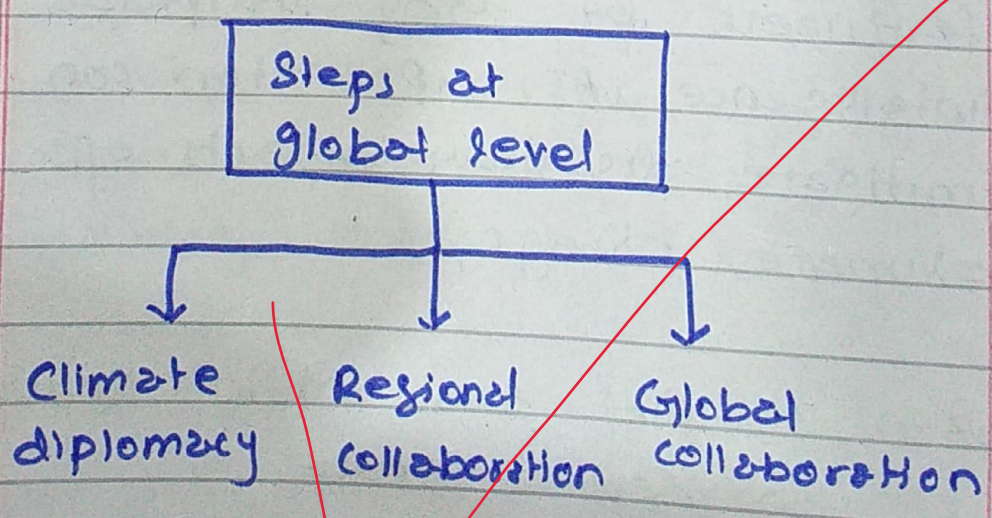 Steps at
global level
Climate
diplomacy
Regional
collaboration
Global
collaboration